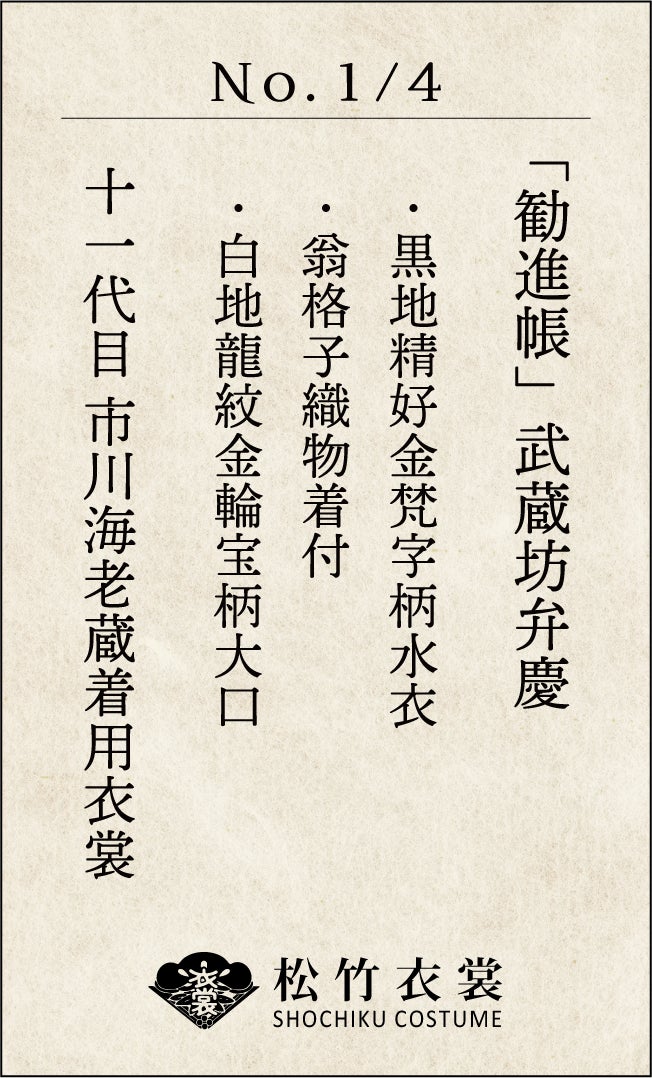 No. 1/4
「勧進帳」武蔵坊弁慶
・黒地精好金梵字柄水衣
・翁格子織物着付
・白地龍紋金輪宝柄大口
十一代目 市川海老蔵着用衣裳
衣裳
松竹衣裳
SHOCHIKU COSTUME